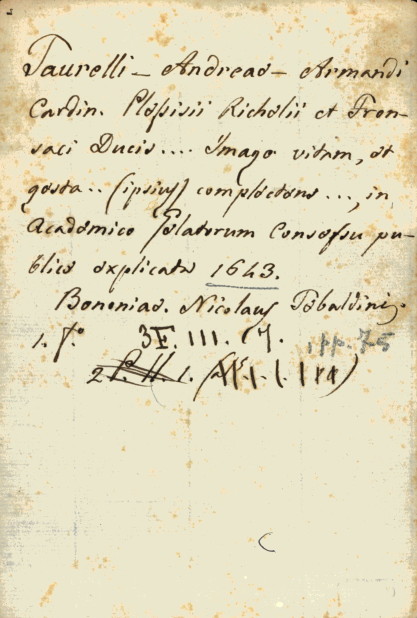 Taurelli - Andreas - Armandi
Cardin. Plessisii Richelii et Fron-
saci Ducis .... Imago vitam, et
gesta .. (ipsius) complectens ..., in
Academico Gelatorum Consessu pu-
blice explicata 1643.
Bononiae. Nicolaus Tebaldini.
1. f.º 3E. III. 17. pp. 75
2